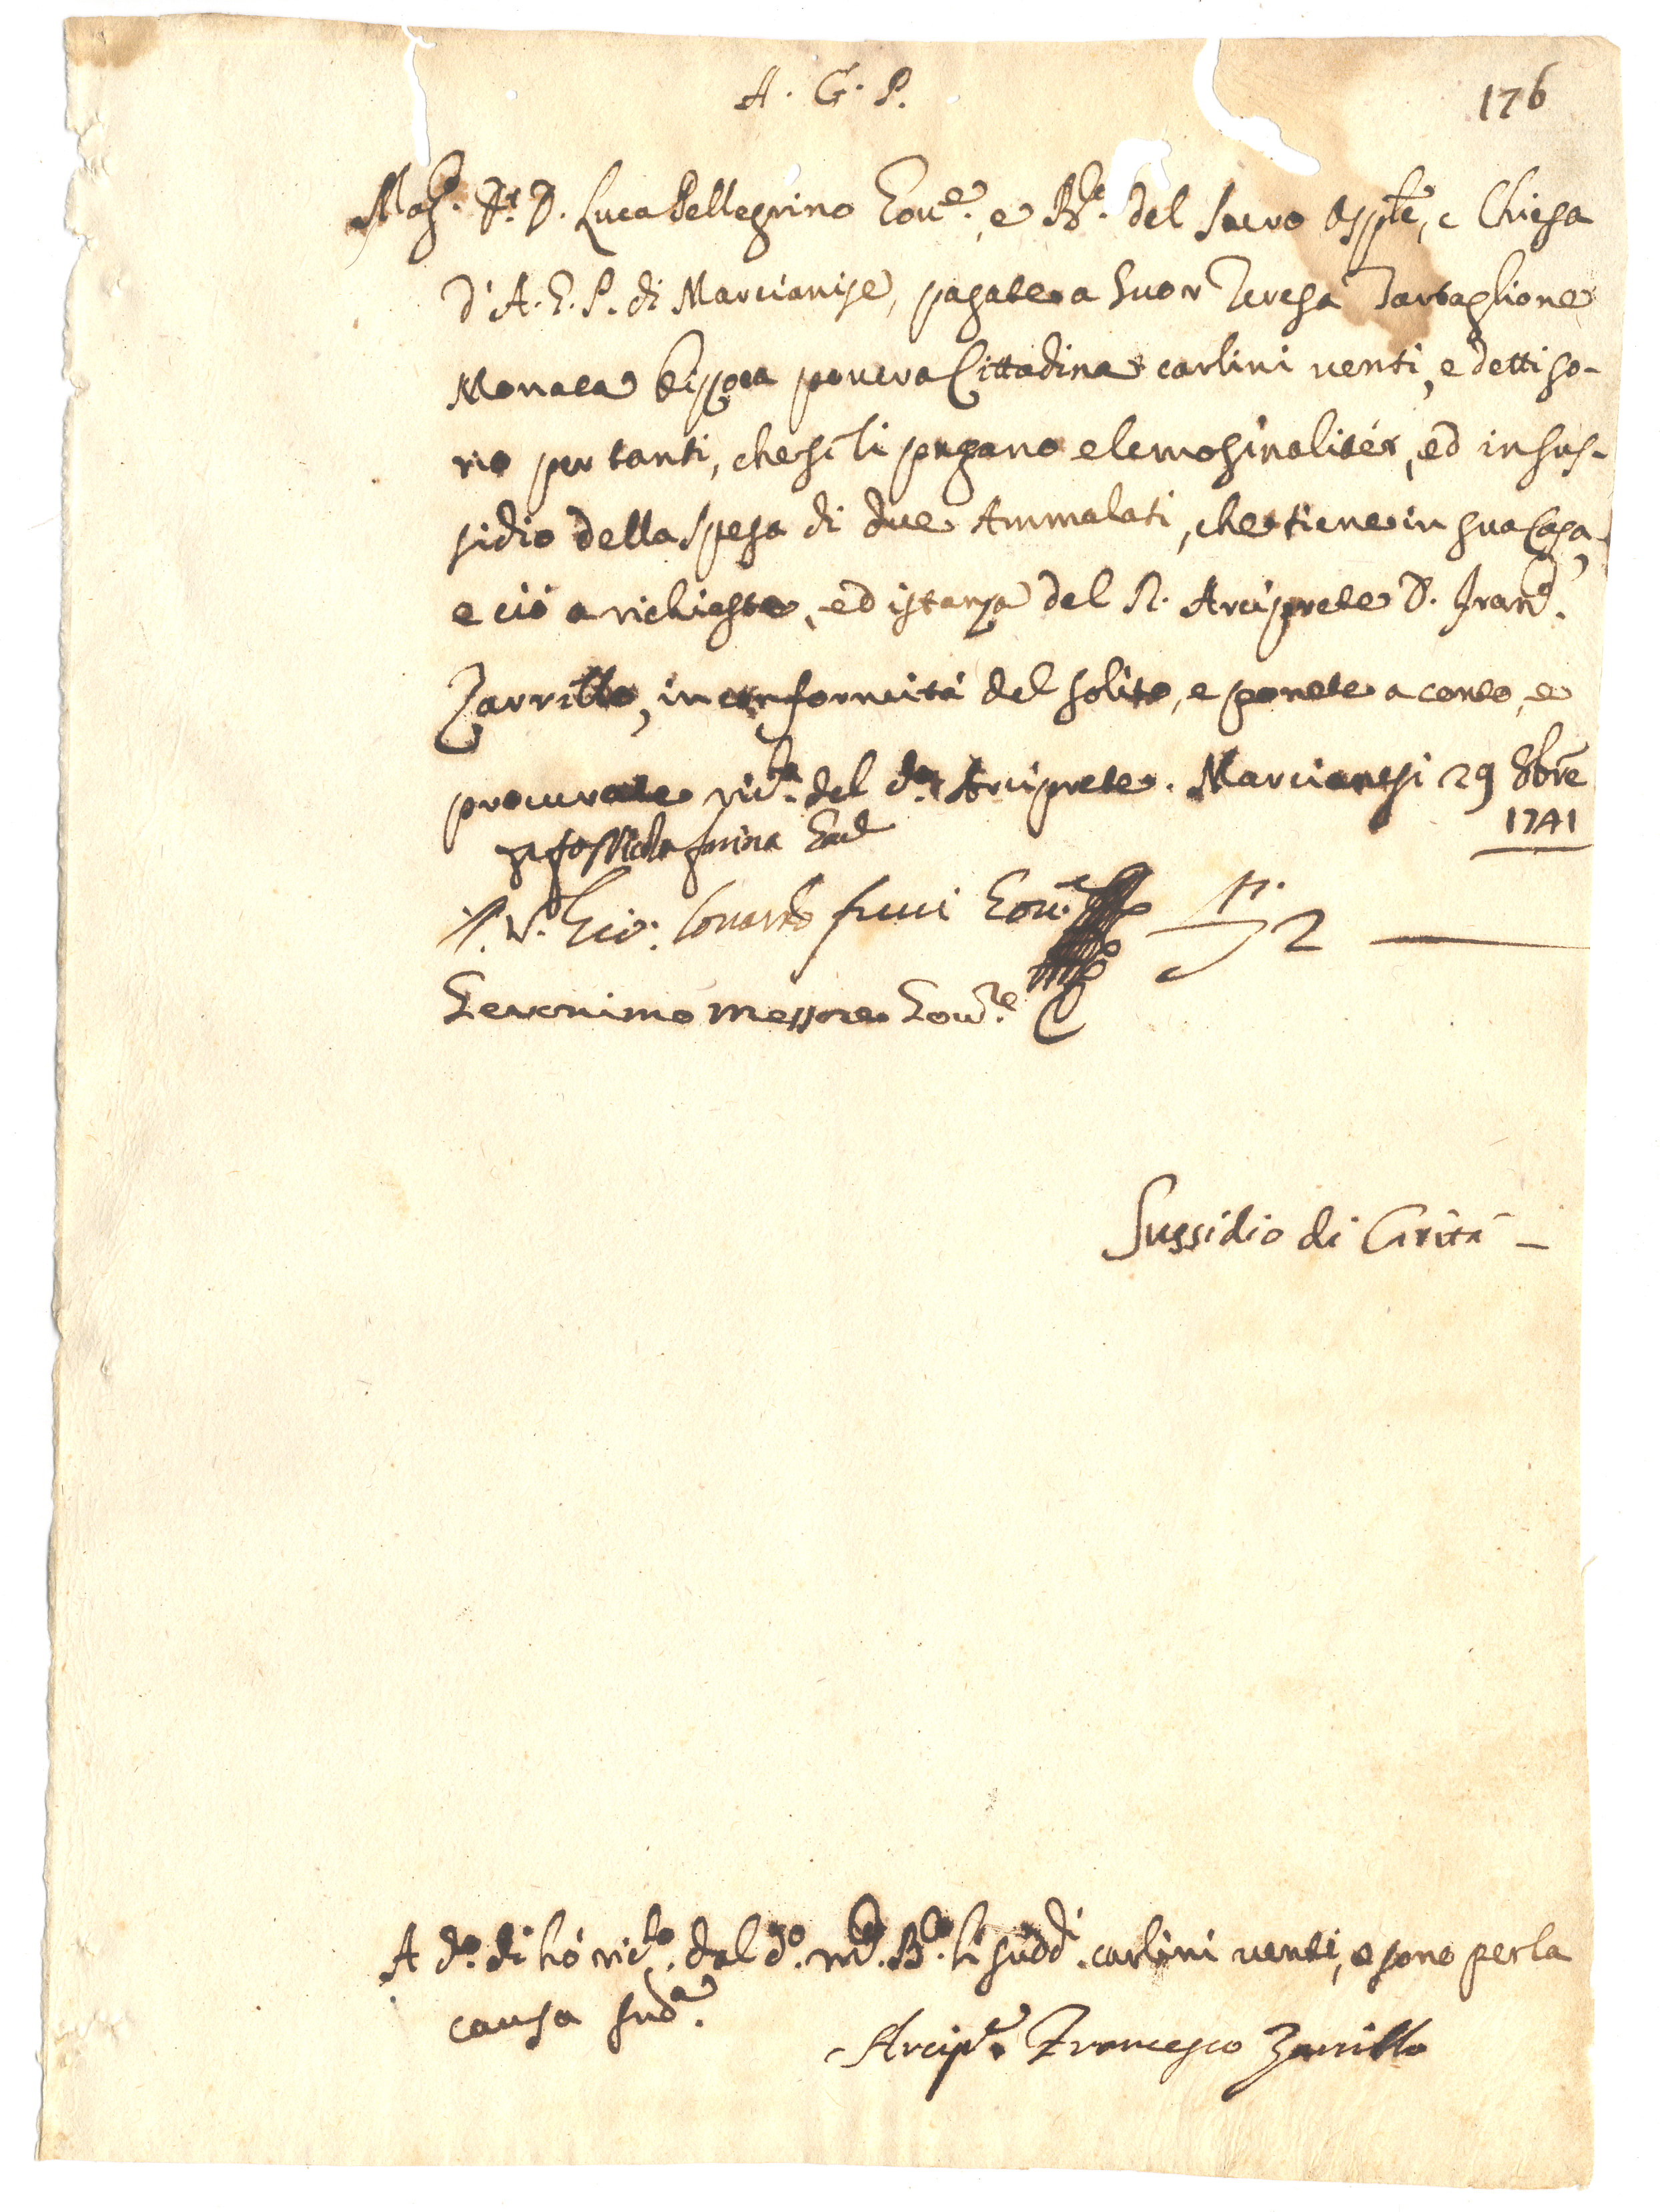 A. G. P.
176
Mag.co Dr. D. Luca Pellegrino Gov.e, e B.re del Sacro Osp.le, e Chiesa
d'A. G. P. di Marcianise, pagate a Suor Teresa Tartaglione
Monaca bizoca povera Cittadina carlini venti, e detti so-
no per tanti, che si li pagano elemosinalitér, ed in sus-
sidio della spesa di due Ammalati, che tiene in sua Casa,
e ció a richiesta, ed istanza del R. Arciprete D. Fran.co
Zarrillo, in conformitá del solito, e ponete a conto, e
procurate ric.ta del d.o Arciprete. Marcianesi 29 8bre
1741
farina Gov.e
Gio: Gov.e
D. 2
Geronimo Messore Gov.re
Sussidio di Caritá
A d.o di hó ric.to dal d.o B.re li sudd.i carlini venti, e sono per la
causa sud.a
Arcip.e Francesco Zarrillo